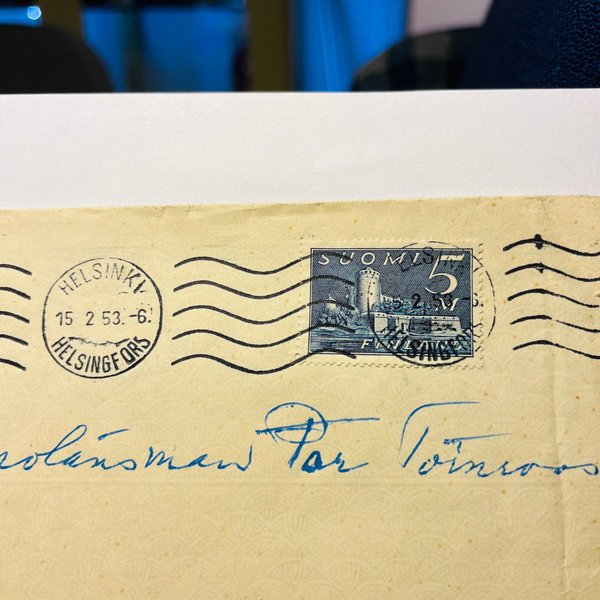 HELSINKI
15 2 53.-6.
HELSINGFORS
SUOMI 5
FINLAND
HELSINKI
15. 2. 53.-6.
HELSINGFORS
Törnroos